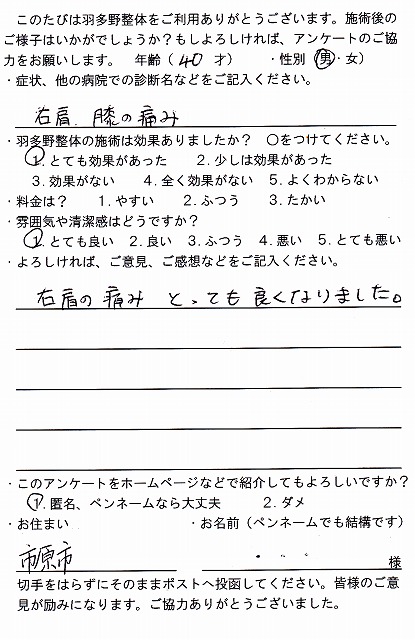 このたびは羽多野整体をご利用ありがとうございます。施術後の
ご様子はいかがでしょうか?もしよろしければ、アンケートのご協
力をお願いします。 年齢( 40 才) ・性別(男・女)
・症状、他の病院での診断名などをご記入ください。
右肩、膝の痛み
・羽多野整体の施術は効果ありましたか? ○をつけてください。
1. とても効果があった 2. 少しは効果があった
3. 効果がない 4. 全く効果がない 5. よくわからない
・料金は? 1. やすい 2. ふつう 3. たかい
・雰囲気や清潔感はどうですか?
1. とても良い 2. 良い 3. ふつう 4. 悪い 5. とても悪い
・よろしければ、ご意見、ご感想などをご記入ください。
右肩の痛み とっても良くなりました。
・このアンケートをホームページなどで紹介してもよろしいですか?
1. 匿名、ペンネームなら大丈夫 2. ダメ
・お住まい ・お名前(ペンネームでも結構です)
市原市 ・・・ 様
切手をはらずにそのままポストへ投函してください。皆様のご意
見が励みになります。ご協力ありがとうございました。